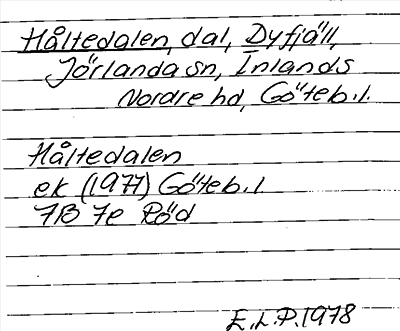 Håltedalen, dal, Dyfjäll,
Jörlanda sn, Inlands
Nordre hd, Göteb.l.
Håltedalen
ek (1977) Göteb.l
7B 7e Röd
E.L.P. 1978